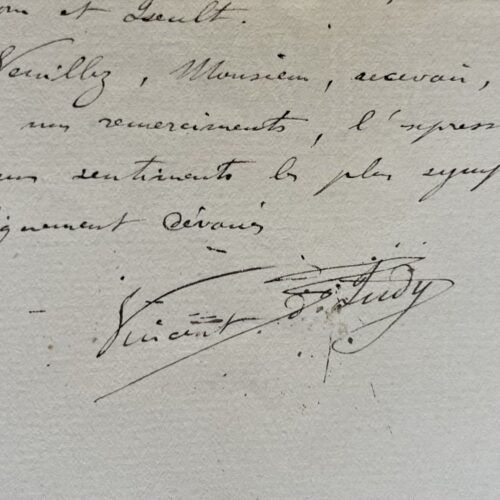 et Iseult.
Veuillez, Monsieur, recevoir,
nos remerciments, l'express
sentiments les plus symp
iquement dévoués
Vincent d'Indy